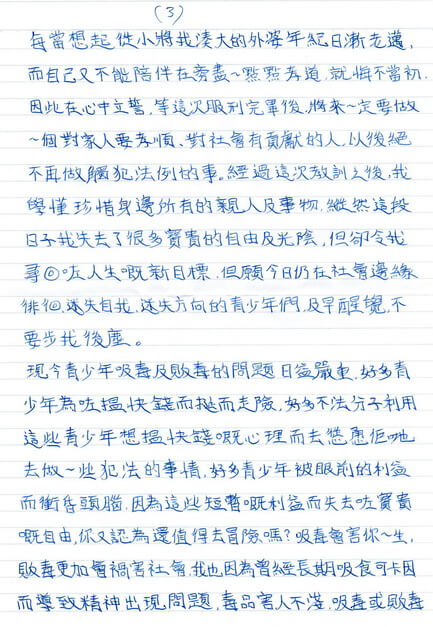 (3)
每當想起從小將我湊大的外婆年紀日漸老邁,
而自己又不能陪伴在旁盡一點點孝道, 就悔不當初.
因此在心中立誓, 等這次服刑完畢後, 將來一定要做
一個對家人要孝順、對社會有貢獻的人, 以後絕
不再做觸犯法例的事。經過這次教訓之後, 我
學懂珍惜身邊所有的親人及事物, 縱然這段
日子我失去了很多寶貴的自由及光陰, 但卻令我
尋回咗人生嘅新目標, 但願今日仍在社會邊緣
徘徊, 迷失自我, 迷失方向的青少年們, 及早醒覺, 不
要步我後塵。
現今青少年吸毒及販毒的問題日益嚴重, 好多青
少年為咗搵快錢而挺而走險, 好多不法分子利用
這些青少年想搵快錢嘅心理而去慫恿佢哋
去做一些犯法的事情, 好多青少年被眼前的利益
而衝昏頭腦, 因為這些短暫嘅利益而失去咗寶貴
嘅自由, 你又認為還值得去冒險嗎? 吸毒會害你一生,
販毒更加會禍害社會, 我也因為曾經長期吸食可卡因
而導致精神出現問題, 毒品害人不淺, 吸毒或販毒